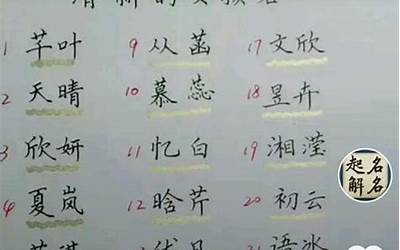 清新的女孩名
1 芊叶 9 从菡 17 文欣
2 天晴 10 慕蕊 18 昱卉
3 欣妍 11 忆白 19 湘滢
4 夏岚 12 晗芹 20 初云
语冰
起名
解名